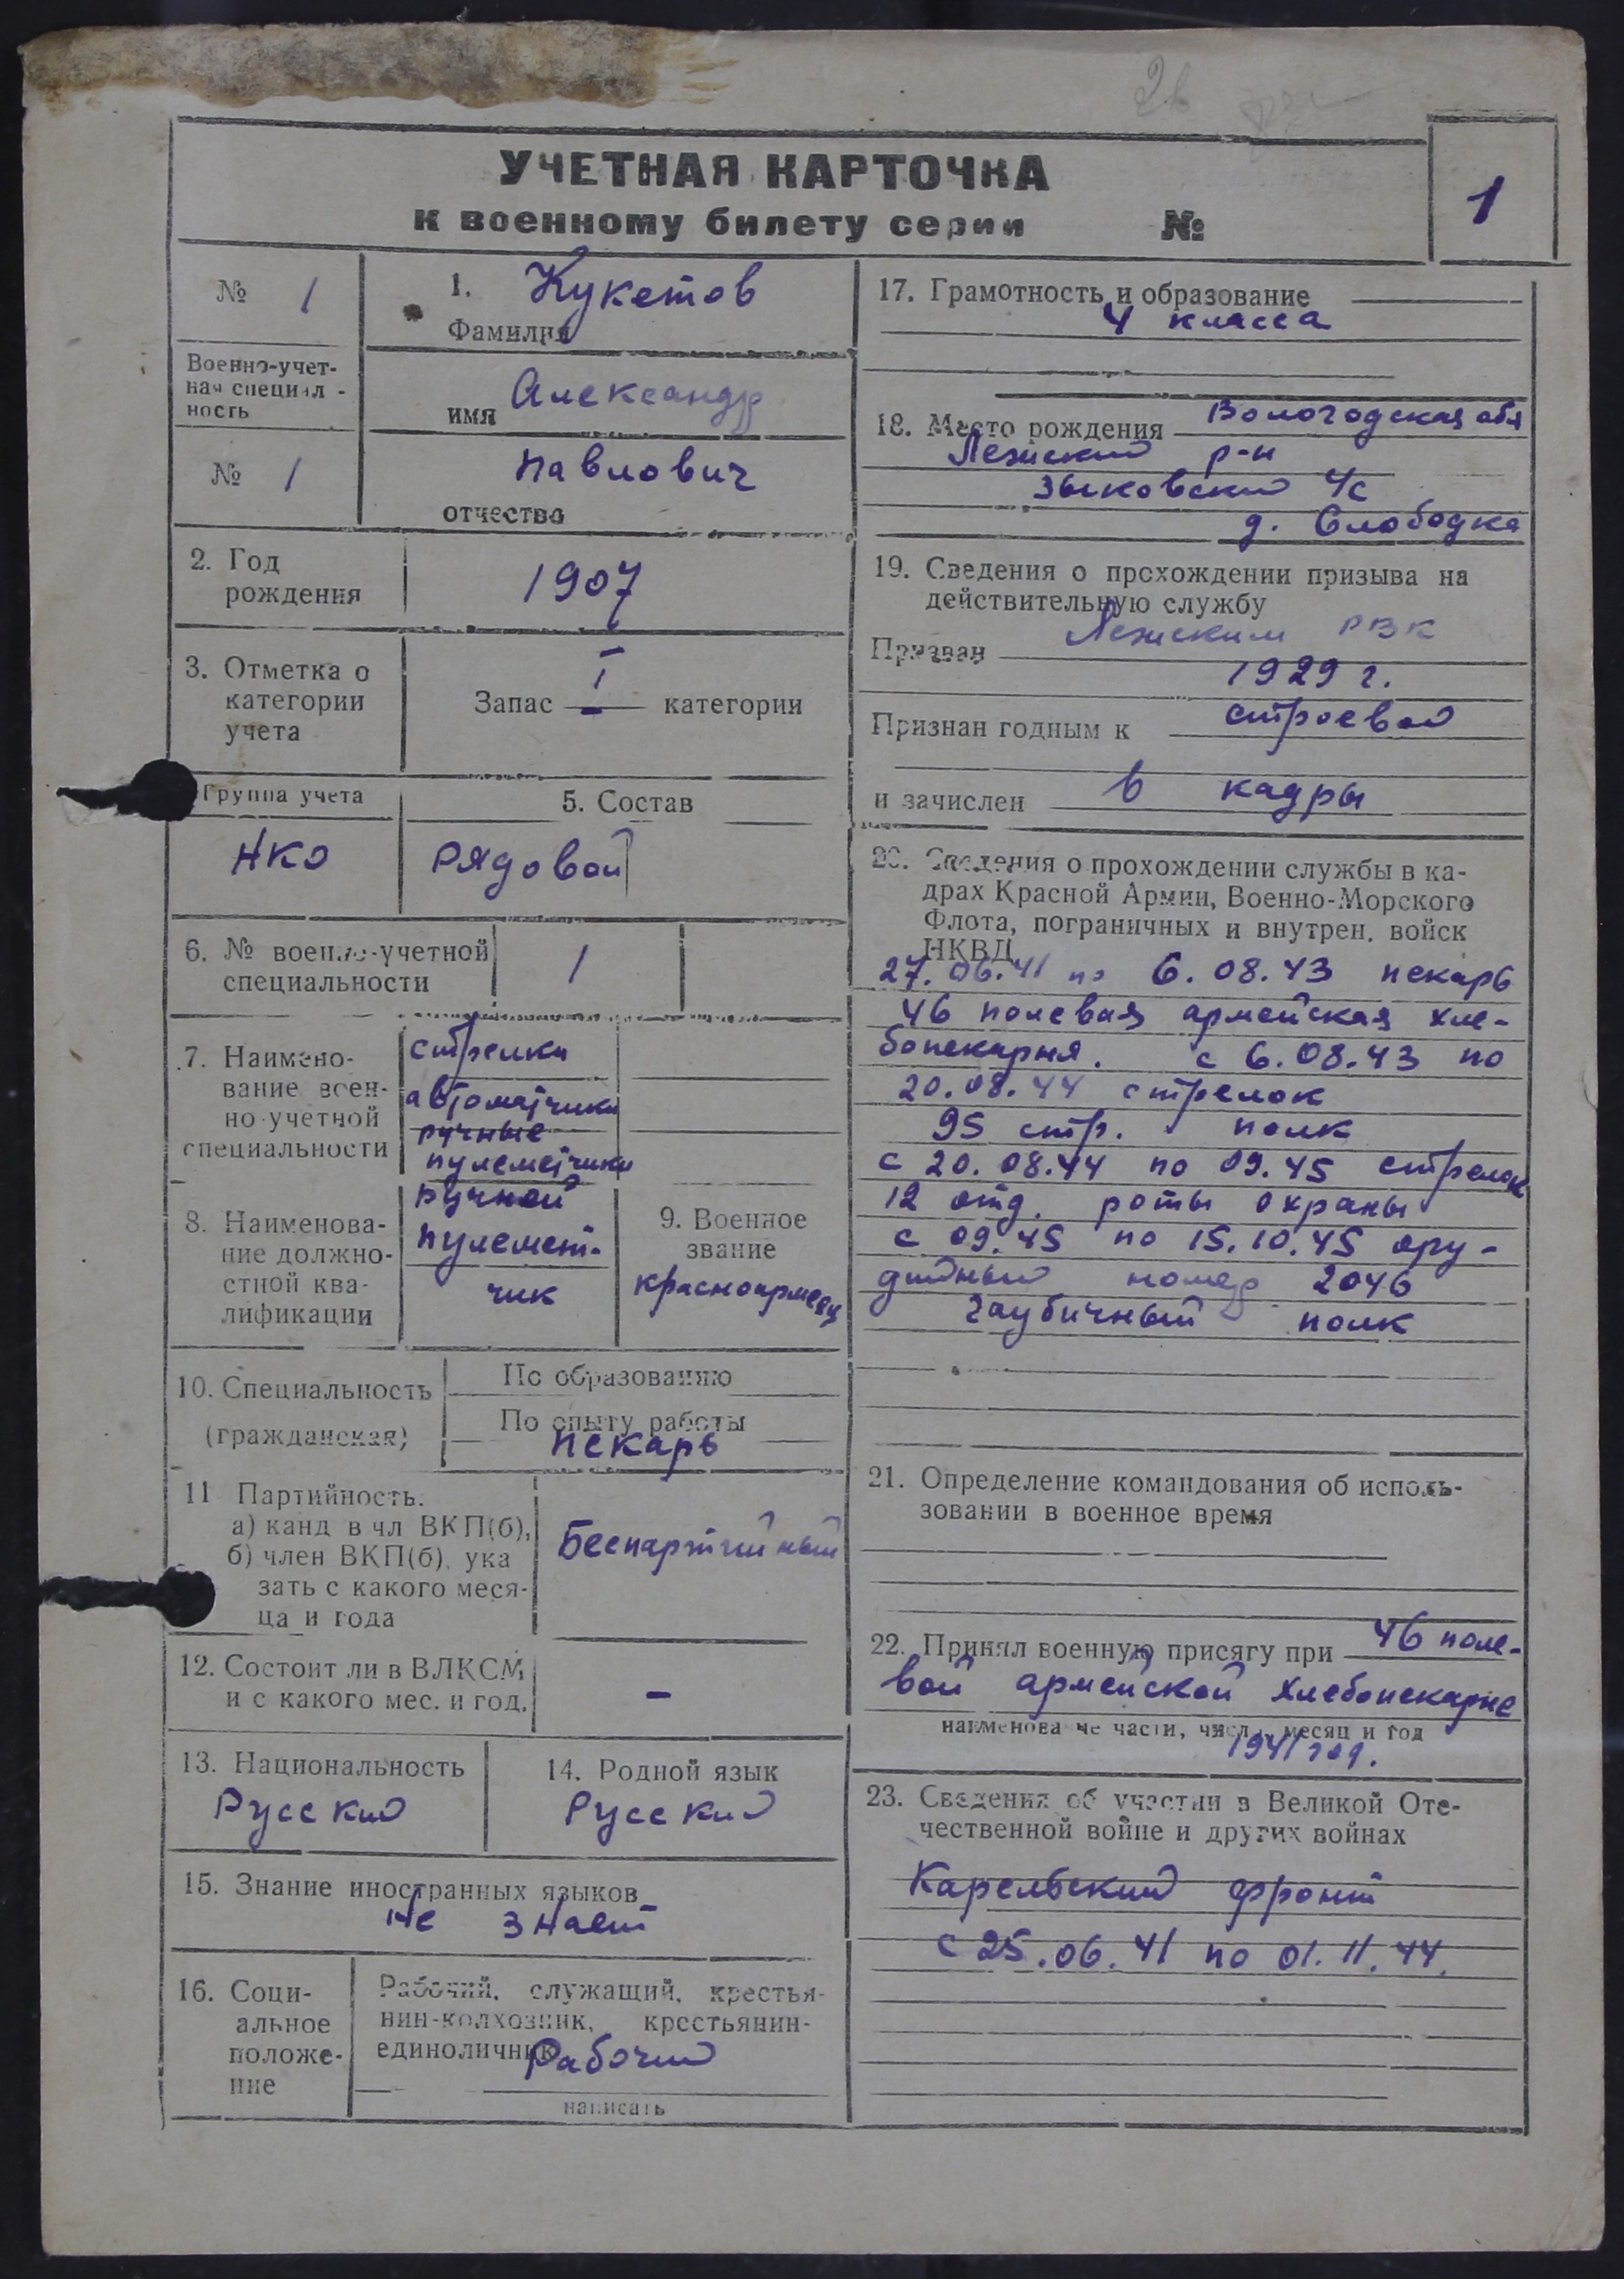 УЧЕТНАЯ КАРТОЧКА
к военному билету серии №
1
№ 1
Военно-учет-
ная специал -
ность
№ 1
1. Кукетов
Фамилия
имя Александр
Павлович
отчество
2. Год
рождения
1907
3. Отметка о
категории
учета
Запас I категории
Группа учета
НКО
5. Состав
Рядовой
6. № военно-учетной
специальности
1
7. Наимено-
вание воен-
но-учетной
специальности
стрелки
автоматчики
ручные
пулеметчики
8. Наименова-
ние должно-
стной ква-
лификации
ручной
пулемет-
чик
9. Военное
звание
красноармеец
10. Специальность
(гражданская)
По образованию
По опыту работы
пекарь
11 Партийность:
а) канд в чл ВКП(б),
б) член ВКП(б), ука
зать с какого меся-
ца и года
Беспартийный
12. Состоит ли в ВЛКСМ
и с какого мес. и год.
-
13. Национальность
Русский
14. Родной язык
Русский
15. Знание иностранных языков
Не знает
16. Соци-
альное
положе-
ние
Рабочий, служащий, крестья-
нин-колхозник, крестьянин-
единоличник
Рабочий
написать
17. Грамотность и образование
4 класса
18. Место рождения Вологодская обл
Лежский р-н
Зыковский ч/с
д. Слободка
19. Сведения о прохождении призыва на
действительную службу
Призван Лежским РВК
1929 г.
Признан годным к строевой
и зачислен в кадры
20. Сведения о прохождении службы в ка-
драх Красной Армии, Военно-Морского
Флота, пограничных и внутрен. войск
НКВД
27.06.41 по 6.08.43 пекарь
46 полевая армейская хле-
бопекарня. с 6.08.43 по
20.08.44 стрелок
95 стр. полк
с 20.08.44 по 09.45 стрелок
12 отд. роты охраны
с 09.45 по 15.10.45 ору-
дийный номер 2046
гаубичный полк
21. Определение командования об исполь-
зовании в военное время
22. Принял военную присягу при 46 поле-
вой армейской хлебопекарне
наименование части, число, месяц и год
1941 год.
23. Сведения об участии в Великой Оте-
чественной войне и других войнах
Карельский фронт
с 25.06.41 по 01.11.44.